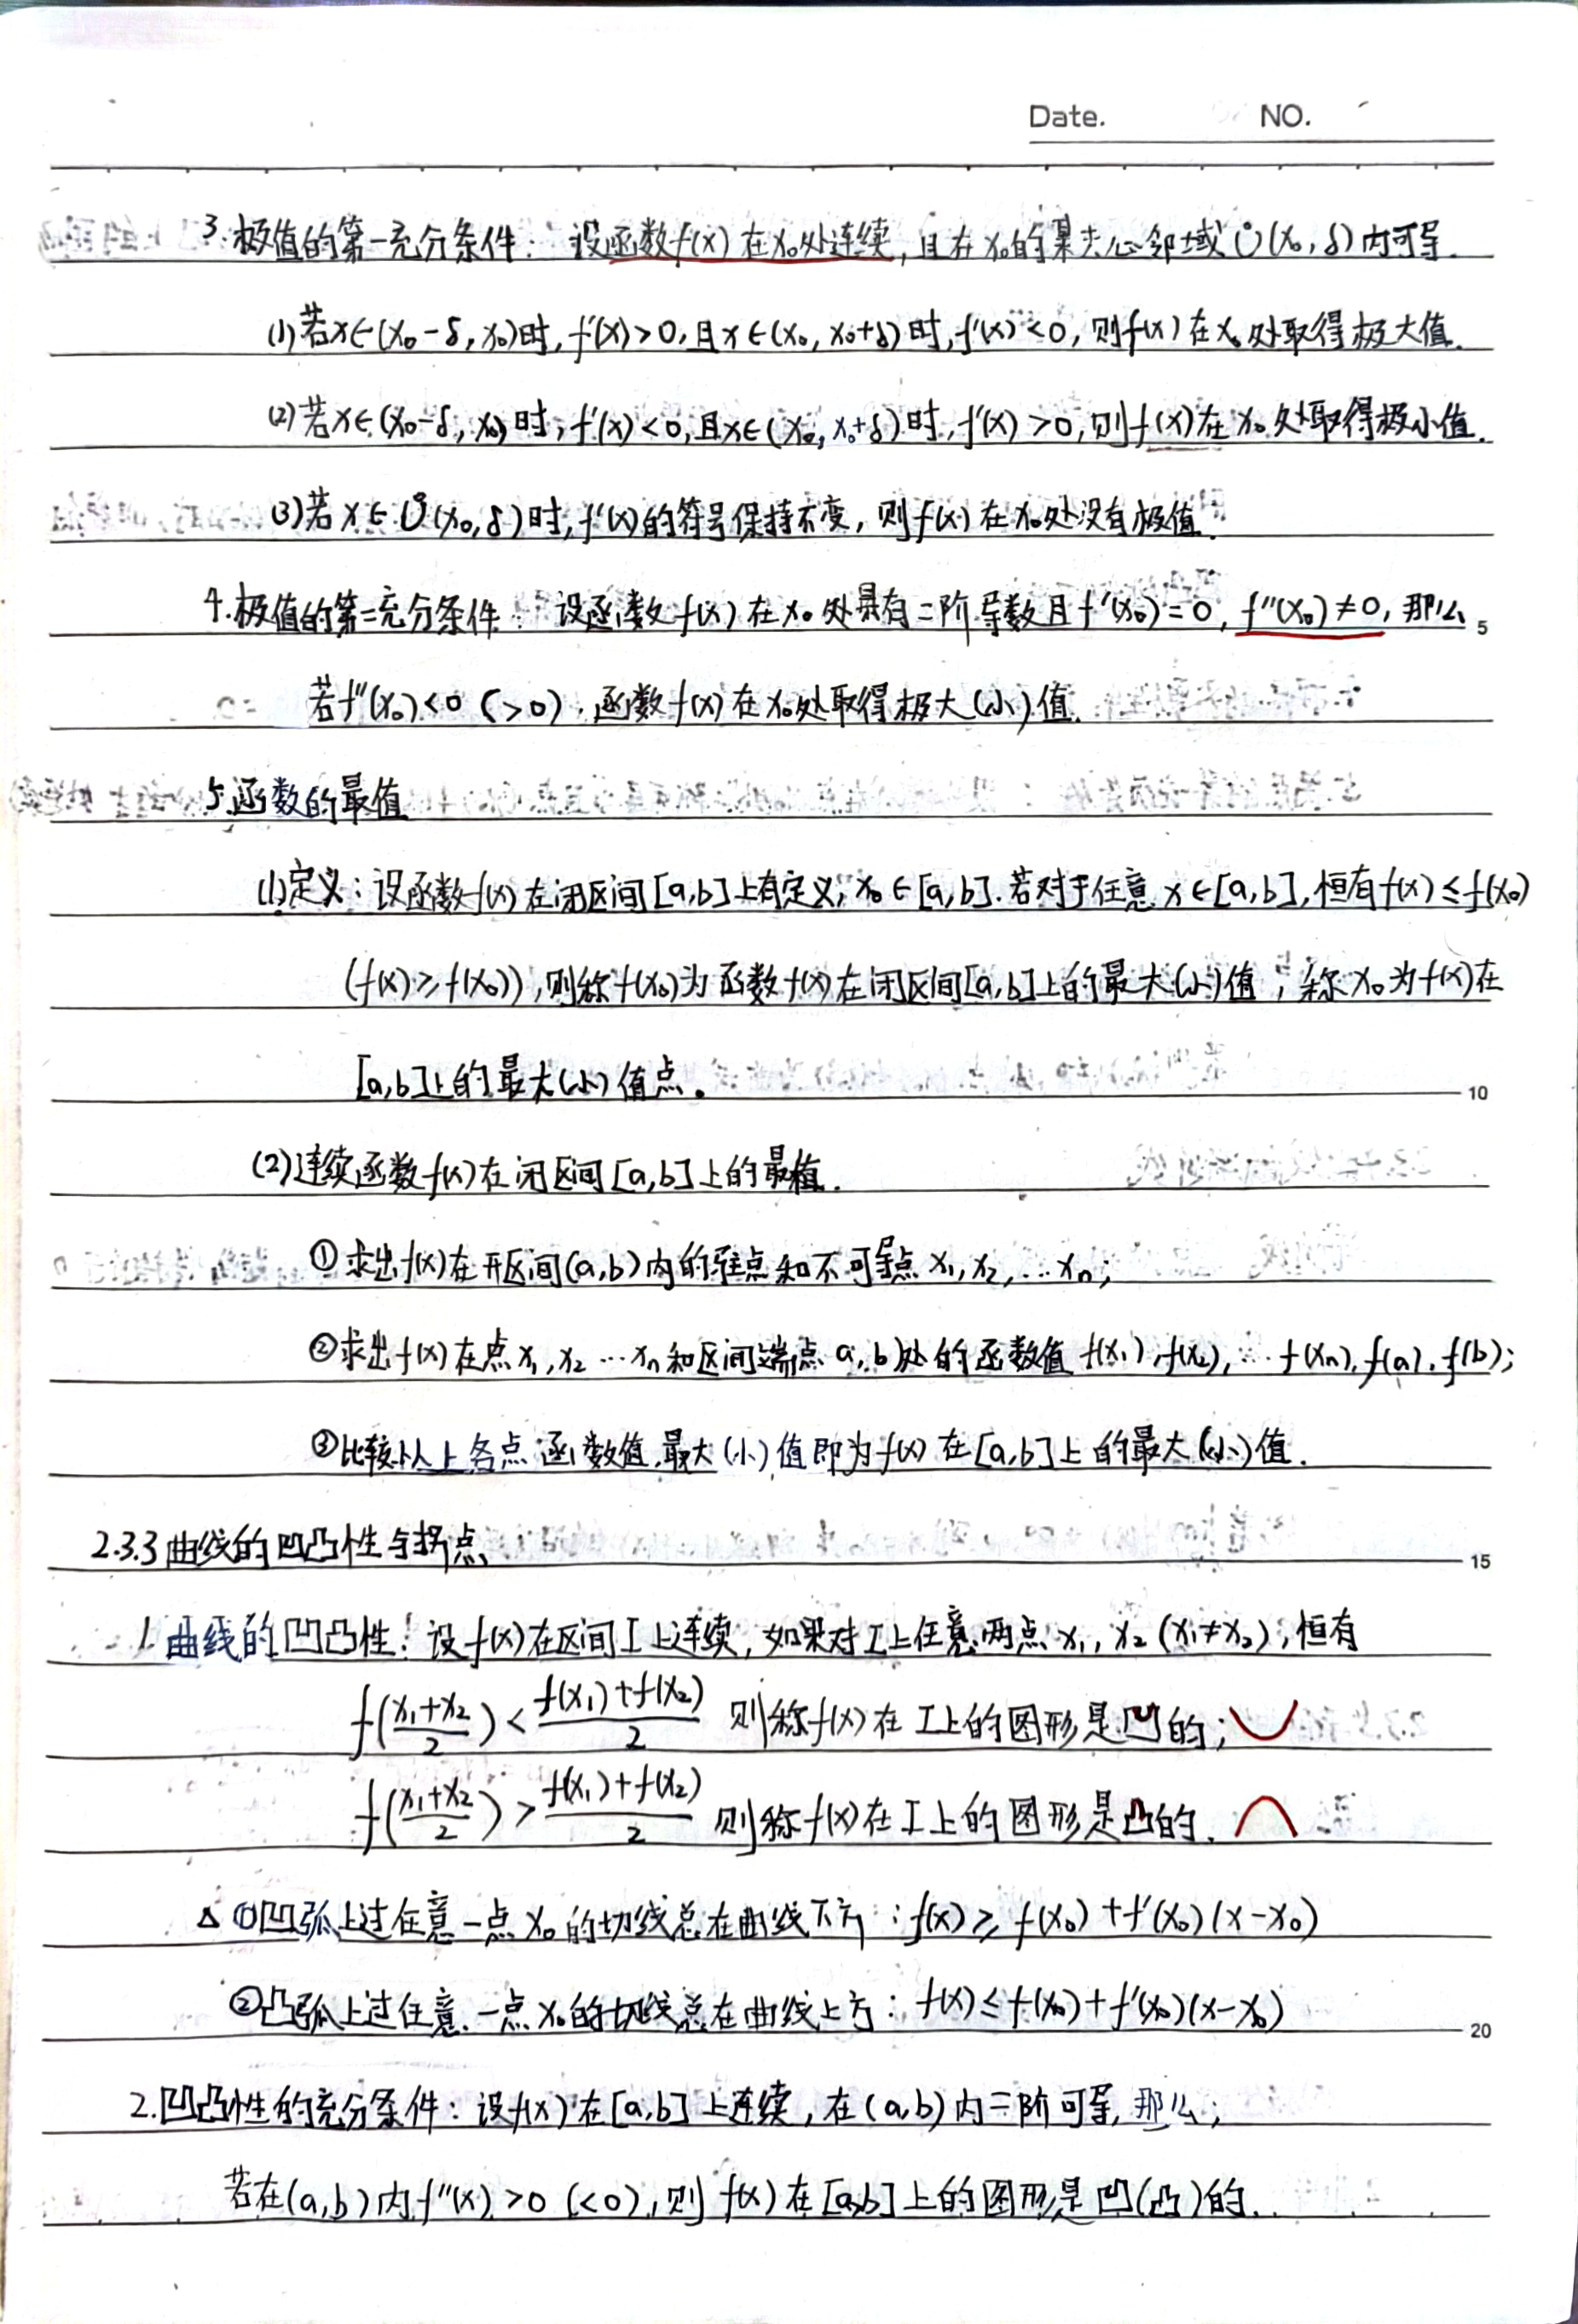 Date. NO.
3.极值的第一充分条件：设函数f(x)在x₀处连续，且在x₀的某去心邻域Ů(x₀,δ)内可导.
(1)若x∈(x₀-δ,x₀)时,f'(x)>0,且x∈(x₀,x₀+δ)时,f'(x)<0,则f(x)在x₀处取得极大值.
(2)若x∈(x₀-δ,x₀)时,f'(x)<0,且x∈(x₀,x₀+δ)时,f'(x)>0,则f(x)在x₀处取得极小值.
(3)若x∈Ů(x₀,δ)时,f'(x)的符号保持不变，则f(x)在x₀处没有极值.
4.极值的第二充分条件：设函数f(x)在x₀处具有二阶导数且f'(x₀)=0,f''(x₀)≠0,那么 5
若f''(x₀)<0(>0),函数f(x)在x₀处取得极大(小)值.
5.函数的最值
(1)定义：设函数f(x)在闭区间[a,b]上有定义,x₀∈[a,b].若对于任意x∈[a,b],恒有f(x)≤f(x₀)
(f(x)≥f(x₀)),则称f(x₀)为函数f(x)在闭区间[a,b]上的最大(小)值，称x₀为f(x)在
[a,b]上的最大(小)值点。 10
(2)连续函数f(x)在闭区间[a,b]上的最值.
①求出f(x)在开区间(a,b)内的驻点和不可导点x₁,x₂,…xₙ;
②求出f(x)在点x₁,x₂…xₙ和区间端点a,b处的函数值f(x₁),f(x₂),…f(xₙ),f(a),f(b);
③比较以上各点函数值,最大(小)值即为f(x)在[a,b]上的最大(小)值.
2.3.3曲线的凹凸性与拐点 15
1.曲线的凹凸性：设f(x)在区间I上连续，如果对I上任意两点x₁,x₂(x₁≠x₂),恒有
f((x₁+x₂)/2)<(f(x₁)+f(x₂))/2 则称f(x)在I上的图形是凹的;
f((x₁+x₂)/2)>(f(x₁)+f(x₂))/2 则称f(x)在I上的图形是凸的.
△①凹弧上过任意一点x₀的切线总在曲线下方：f(x)≥f(x₀)+f'(x₀)(x-x₀)
②凸弧上过任意一点x₀的切线总在曲线上方：f(x)≤f(x₀)+f'(x₀)(x-x₀) 20
2.凹凸性的充分条件：设f(x)在[a,b]上连续，在(a,b)内二阶可导,那么;
若在(a,b)内f''(x)>0(<0),则f(x)在[a,b]上的图形是凹(凸)的.